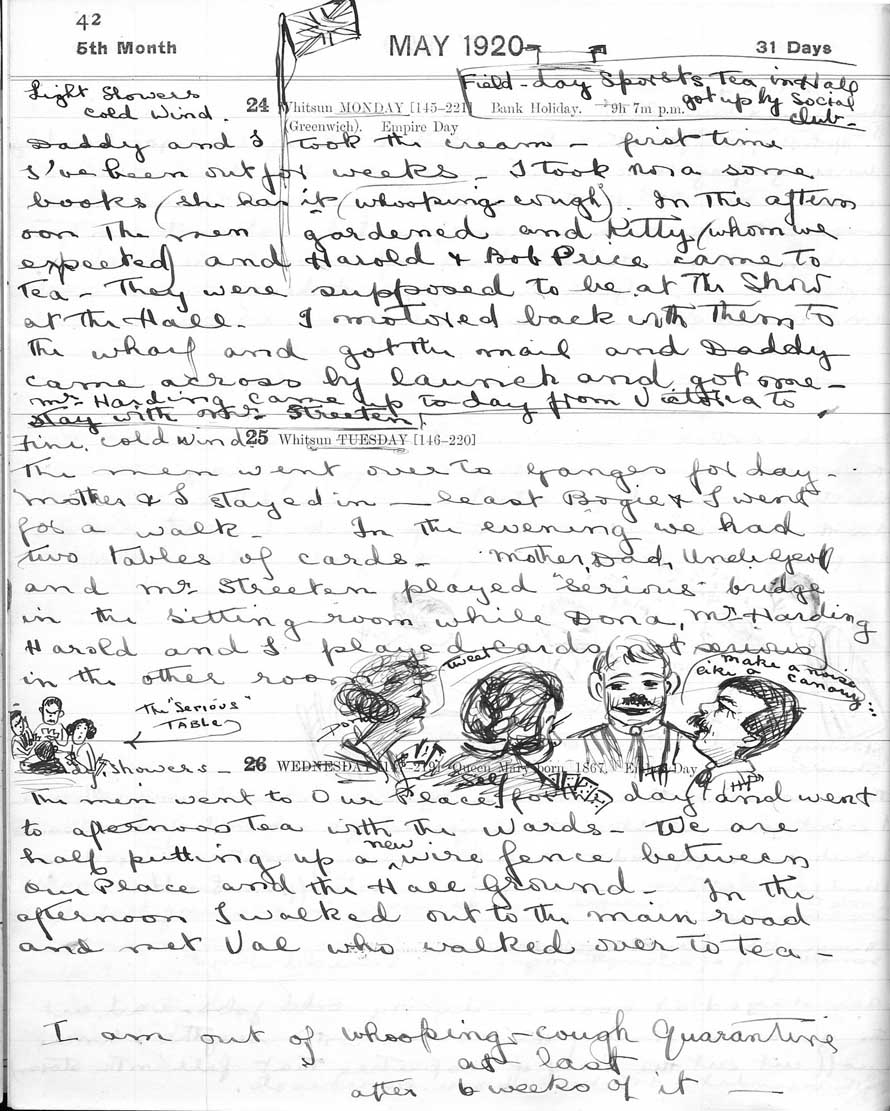 42
5th Month MAY 1920 31 Days
Field-day Sports Tea in Hall
got up by Social
club-
Light Showers
cold wind.
24 Whitsun MONDAY [145-221] Bank Holiday. 9h 7m p.m.
(Greenwich). Empire Day
Daddy and I took the cream - first time
I've been out for weeks. I took Nora some
books (she has it (whooping-cough). In the aftern
oon the men gardened and Kitty (whom we
expected) and Harold & Bob Price came to
tea - They were supposed to be at the Show
at the Hall. I motored back with them to
the wharf and got the mail and Daddy
came across by launch and got me -
Mr. Harding came up to day from Victoria to
stay with Mr. Streeten.
Fine, cold wind. 25 Whitsun TUESDAY [146-220]
The men went over to Ganges for day.
Mother & I stayed in - least Bogie & I went
for a walk. In the evening we had
two tables of cards. Mother, Dad, Uncle Geoff
and Mr. Streeten played "Serious" bridge
in the Sitting-room while Dona, Mr. Harding
Harold and I played cards not serious
in the other room
tweet
make a noise
like a
canary
The "Serious"
TABLE
Dona
Self
showers - 26 WEDNESDAY Queen Mary born 1867. Day
The men went to Our Place for the day and went
to afternoon Tea with the Wards. We are
half putting up a new wire fence between
Our Place and the Hall Ground. In the
afternoon I walked out to the main road
and met Val who walked over to tea -
I am out of whooping-cough Quarantine
at last
after 6 weeks of it -